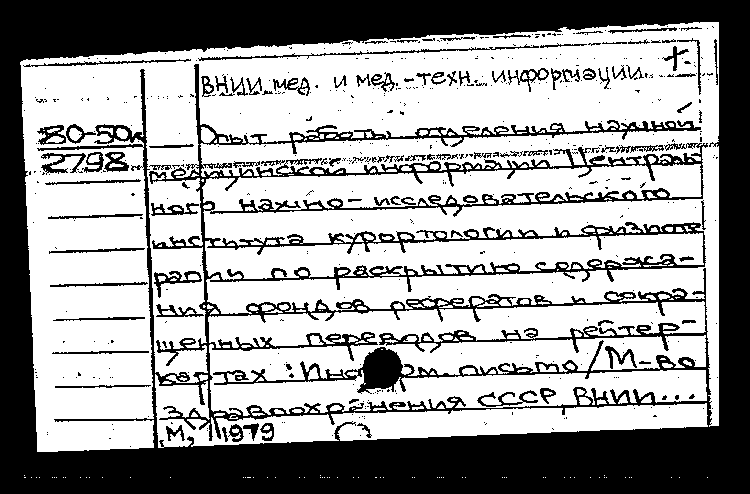 +
ВНИИ мед. и мед.-техн. информации.
80-50к
2798
Опыт работы отделения научной
медицинской информации Централь
ного научно-исследовательского
института курортологии и физиоте
рапии по раскрытию содержа-
ния фондов рефератов и сокра-
щенных переводов на рейтер-
картах: Информ. письмо/М-во
здравоохранения СССР, ВНИИ...
М., 1979